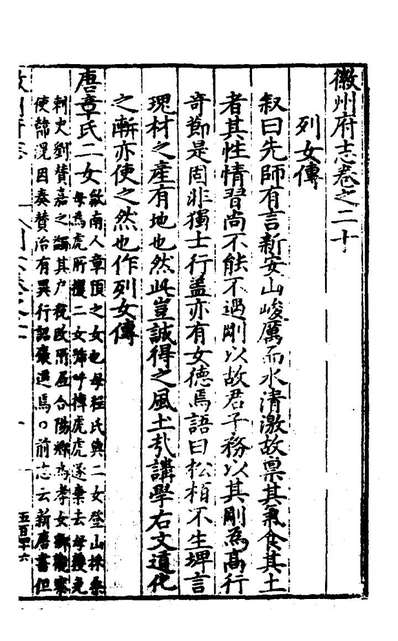 徽州府志卷之二十
列女傳
叙曰先師有言新安山峻厲而水清激故禀其氣食其土
者其性情習尚不能不過剛以故君子務以其剛為高行
奇節是固非獨士行盖亦有女德焉語曰松栢不生埤言
瑰材之産有地也然此豈誠得之風土扎講學右文道化
之漸亦使之然也作列女傳
唐章氏二女歙南人章頂之女也母程氏與二女登山採桑
母為虎所攫二女號呼搏虎虎遂棄去母獲免
刺史劉賛嘉之蠲其户税改所居合陽鄉為孝女鄉觀察
使韓滉因奏賛治有異行詔褒遷焉○前志云新唐書但
五百四六